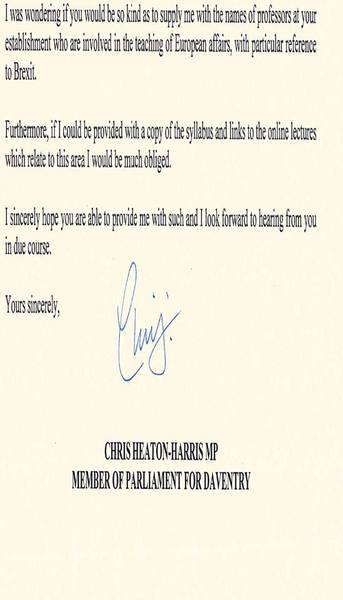 I was wondering if you would be so kind as to supply me with the names of professors at your
establishment who are involved in the teaching of European affairs, with particular reference
to Brexit.
Furthermore, if I could be provided with a copy of the syllabus and links to the online lectures
which relate to this area I would be much obliged.
I sincerely hope you are able to provide me with such and I look forward to hearing from you
in due course.
Yours sincerely,
Chris.
CHRIS HEATON-HARRIS MP
MEMBER OF PARLIAMENT FOR DAVENTRY